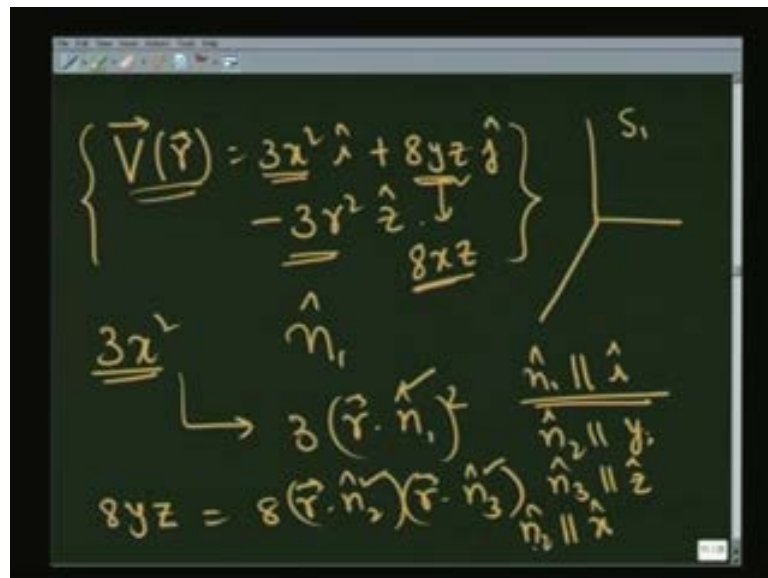 { V⃗(r⃗) = 3x² î + 8yz ĵ
− 3r² ẑ . ↓ }
8xz
S₁
3x²
n̂₁
→ 3(r⃗ · n̂₁)²
n̂₁ ∥ î
n̂₂ ∥ y;
n̂₃ ∥ ẑ
8yz = 8(r⃗ · n̂₂)(r⃗ · n̂₃)
n̂₂ ∥ x̂